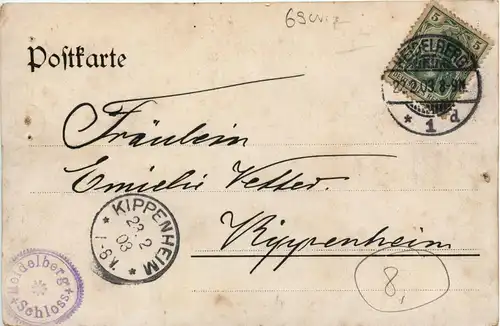 Postkarte
5 5
HEIDELBERG
22.2.03.8-9N.
* 1 d
Fräulein
Emilie Vetter.
Kippenheim
KIPPENHEIM
22.2
03
Heidelberg
Schloss
8,